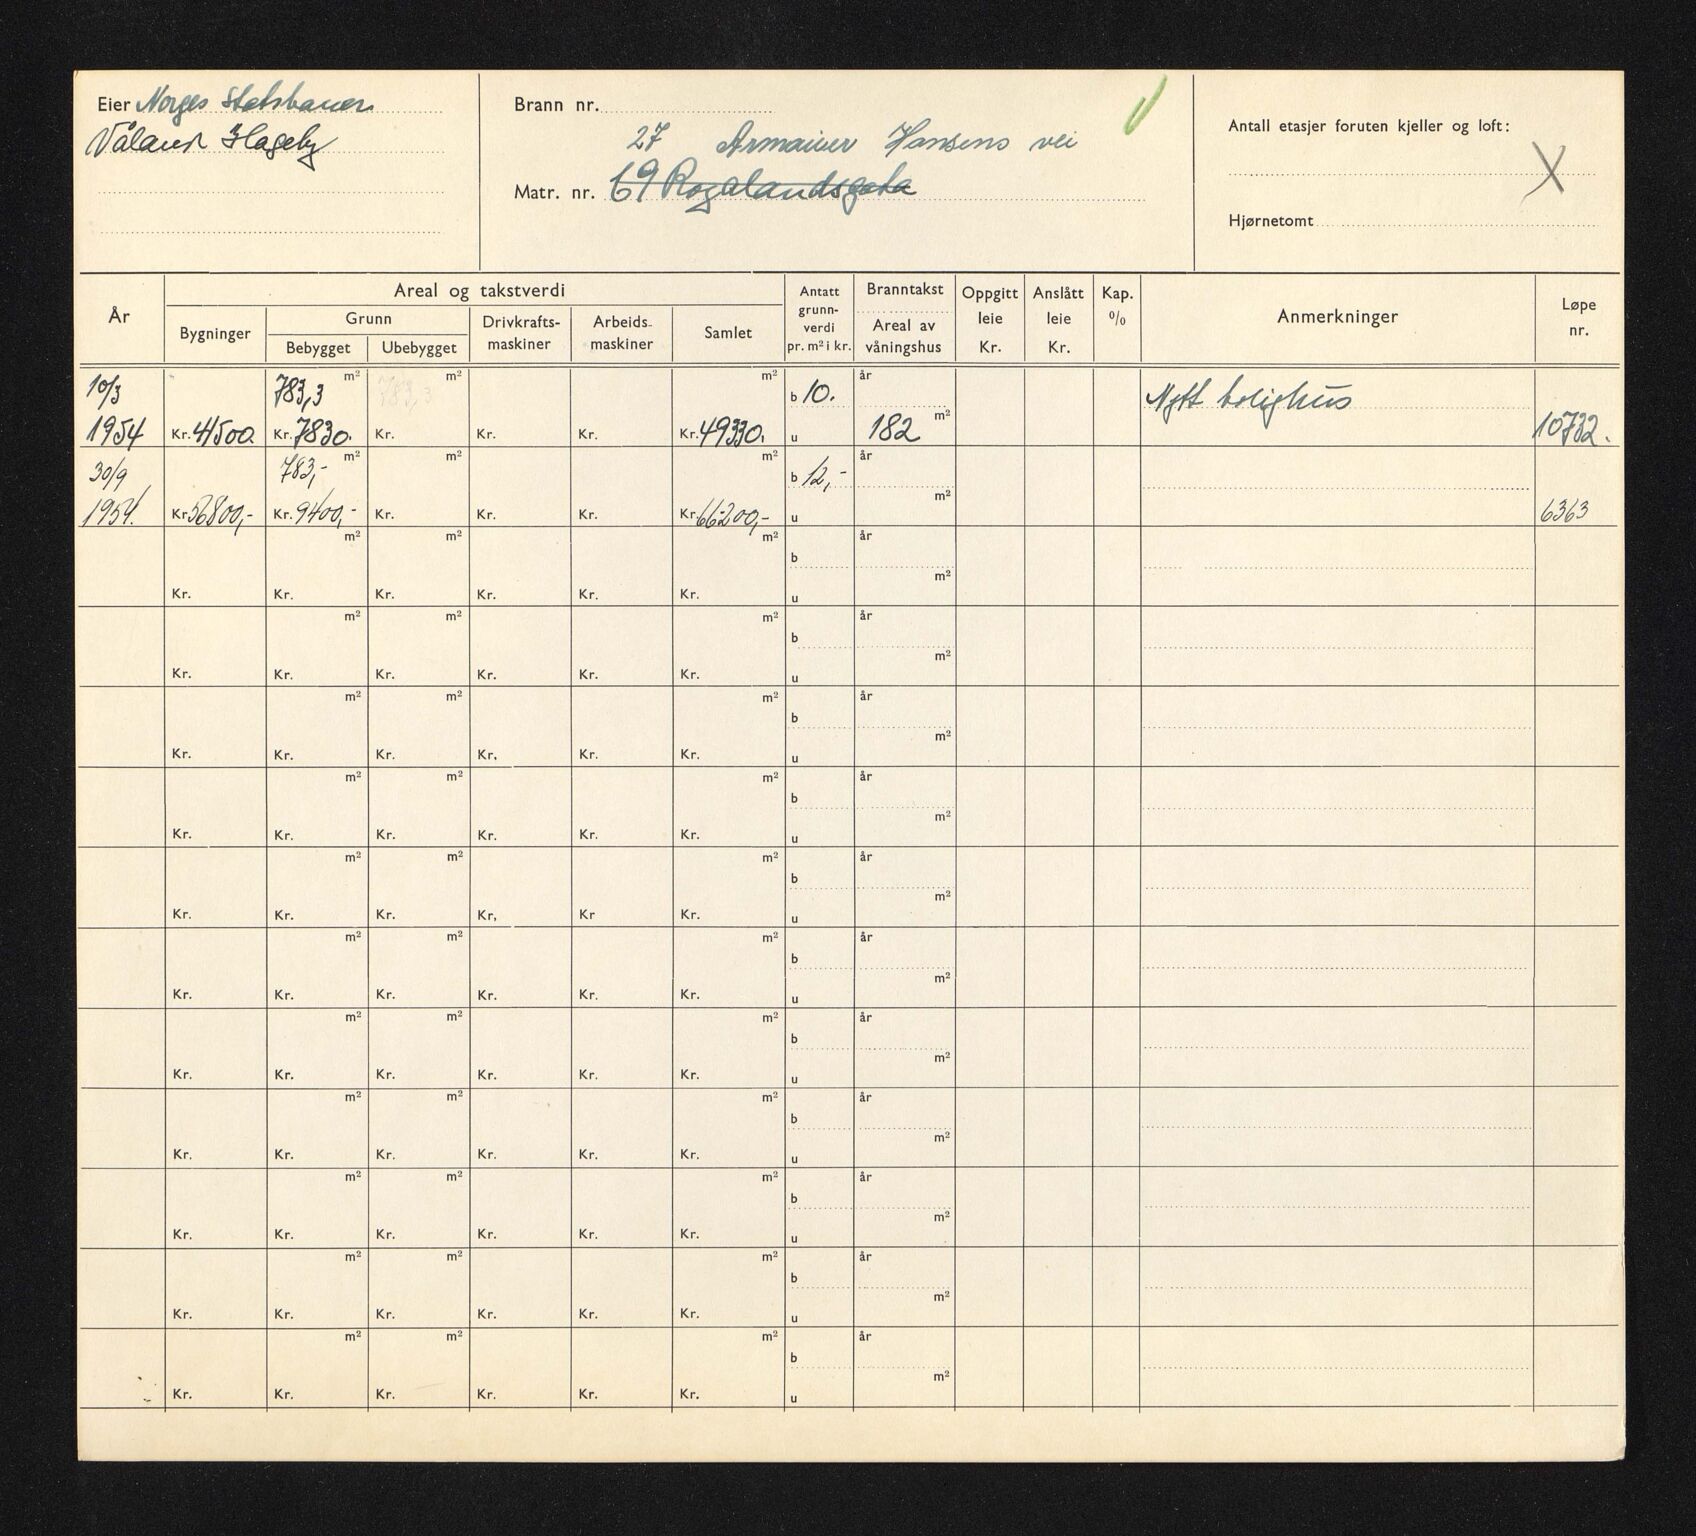 Eier Norges Statsbaner
Våland Hageby
Brann nr.
27 Armauer Hansens vei
Matr. nr. 69 Rogalandsgata
Antall etasjer foruten kjeller og loft:
X
Hjørnetomt
År
Areal og takstverdi
Bygninger
Grunn
Bebygget Ubebygget
Drivkrafts-
maskiner
Arbeids-
maskiner
Samlet
Antatt
grunn-
verdi
pr. m² i kr.
Branntakst
Areal av
våningshus
Oppgitt
leie
Kr.
Anslått
leie
Kr.
Kap.
%
Anmerkninger
Løpe
nr.
10/3 783,3 m² 783,3 m² m² b 10. år Nytt bolighus
1954 Kr. 41500. Kr. 7830. Kr. Kr. Kr. Kr. 49330. u 182 m² 10732.
30/9 783,- m² m² m² b 12,- år
1954. Kr. 56800,- Kr. 9400,- Kr. Kr. Kr. Kr. 66200,- u m² 6363
m² m² m² b år
Kr. Kr. Kr. Kr. Kr. Kr. u m²
m² m² m² b år
Kr. Kr. Kr. Kr. Kr. Kr. u m²
m² m² m² b år
Kr. Kr. Kr. Kr. Kr. Kr. u m²
m² m² m² b år
Kr. Kr. Kr. Kr. Kr. Kr. u m²
m² m² m² b år
Kr. Kr. Kr. Kr, Kr Kr. u m²
m² m² m² b år
Kr. Kr. Kr. Kr. Kr. Kr. u m²
m² m² m² b år
Kr. Kr. Kr. Kr. Kr. Kr. u m²
m² m² m² b år
Kr. Kr. Kr. Kr. Kr. Kr. u m²
m² m² m² b år
Kr. Kr. Kr. Kr. Kr. Kr. u m²
m² m² m² b år
Kr. Kr. Kr. Kr. Kr. Kr. u m²
m² m² m² b år
Kr. Kr. Kr. Kr. Kr. Kr. u m²